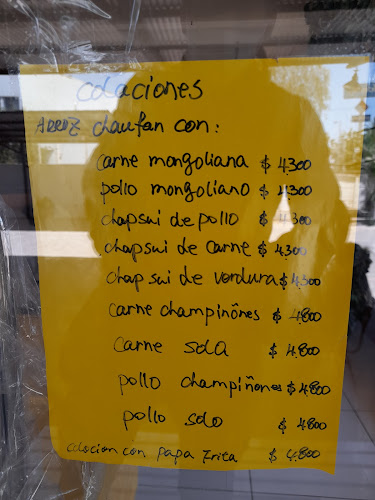 colaciones
Arroz chaufan con:
carne mongoliana $ 4.300
pollo mongoliano $ 4.300
chapsui de pollo $ 4.300
chapsui de carne $ 4.300
chapsui de verdura $ 4.300
carne champinõnes $ 4.800
carne sola $ 4.800
pollo champiñones $ 4.800
pollo solo $ 4.800
colacion con papa Frita $ 4.800